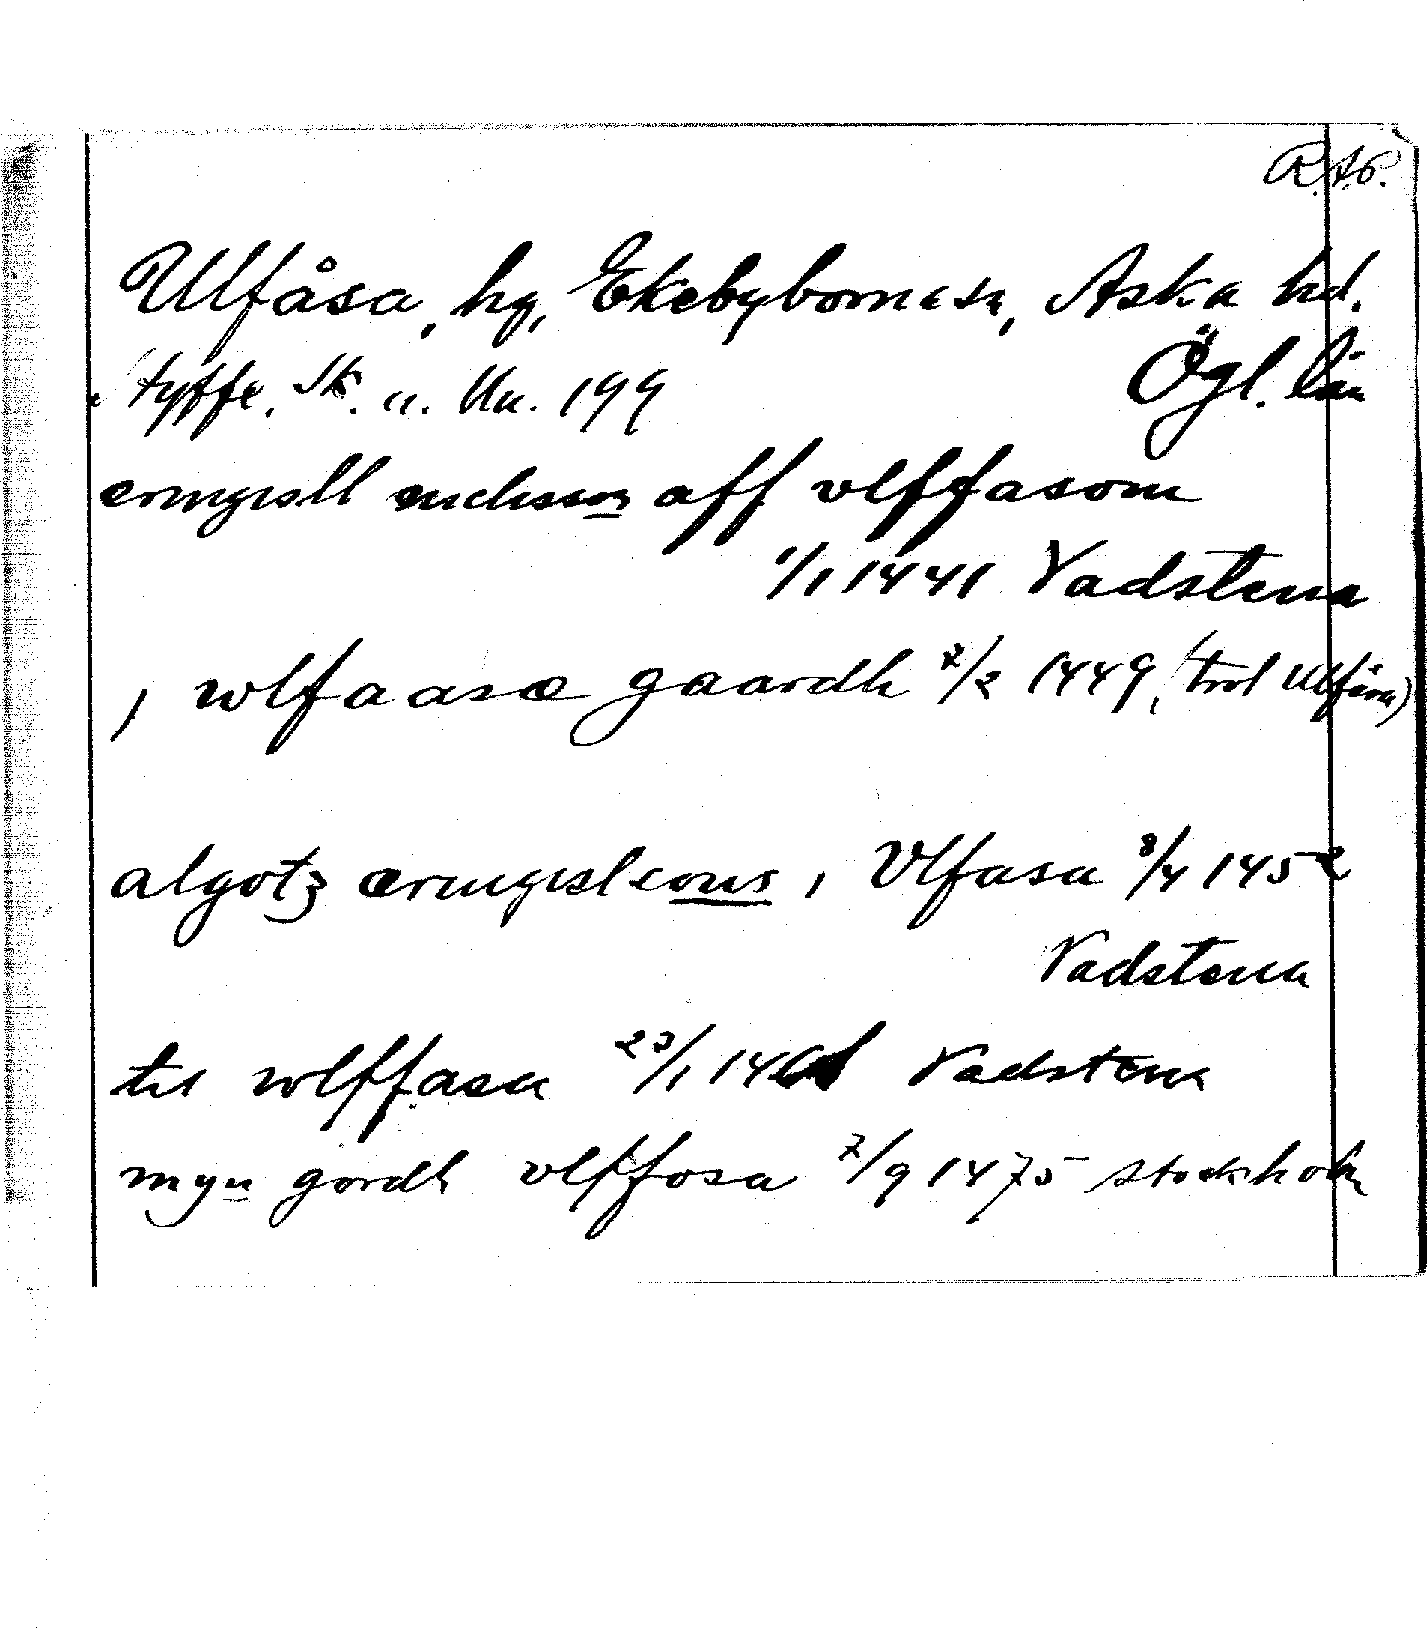 R.A.P.
Ulfåsa, hg, Ekebyborna sn, Aska hd.
Styffe, Sk. u. Un. 199 Ögl. län
ærngisll niclisson aff vlffasom
1/1 1441 Vadstena
ı wlfaasæ gaardh 7/2 1449, (trol Ulfåsa)
algotz ærngislsons ı Vlfasa 8/4 1452
Vadstena
til wlffasa 23/1 Vadstena
myn gordh vlffosa 7/9 1475 Stockholm